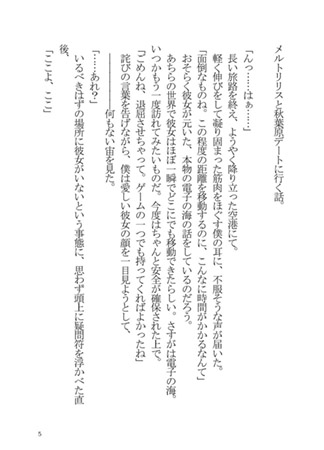 メルトリリスと秋葉原デートに行く話。
「んっ……はぁ……」
長い旅路を終え、ようやく降り立った空港にて。
軽く伸びをして凝り固まった筋肉をほぐす僕の耳に、不服そうな声が届いた。
「面倒なものね。この程度の距離を移動するのに、こんなに時間がかかるなんて」
おそらく彼女が元いた、本物の電子の海の話をしているのだろう。
あちらの世界で彼女はほぼ一瞬でどこにでも移動できたらしい。さすがは電子の海。
いつかもう一度訪れてみたいものだ。今度はちゃんと安全が確保された上で。
「ごめんね、退屈させちゃって。ゲームの一つでも持ってくればよかったね」
詫びの言葉を告げながら、僕は愛しい彼女の顔を一目見ようとして、
――――――何もない宙を見た。
「……あれ？」
いるべきはずの場所に彼女がいないという事態に、思わず頭上に疑問符を浮かべた直
後、
「ここよ、ここ」
5